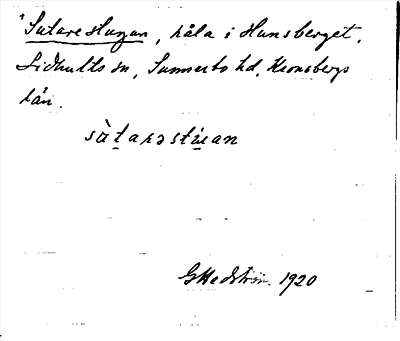 Sutarestugan, håla i Hunsberget,
Lidhults sn, Sunnerbo hd, Kronobergs
län.
G Hedström. 1920